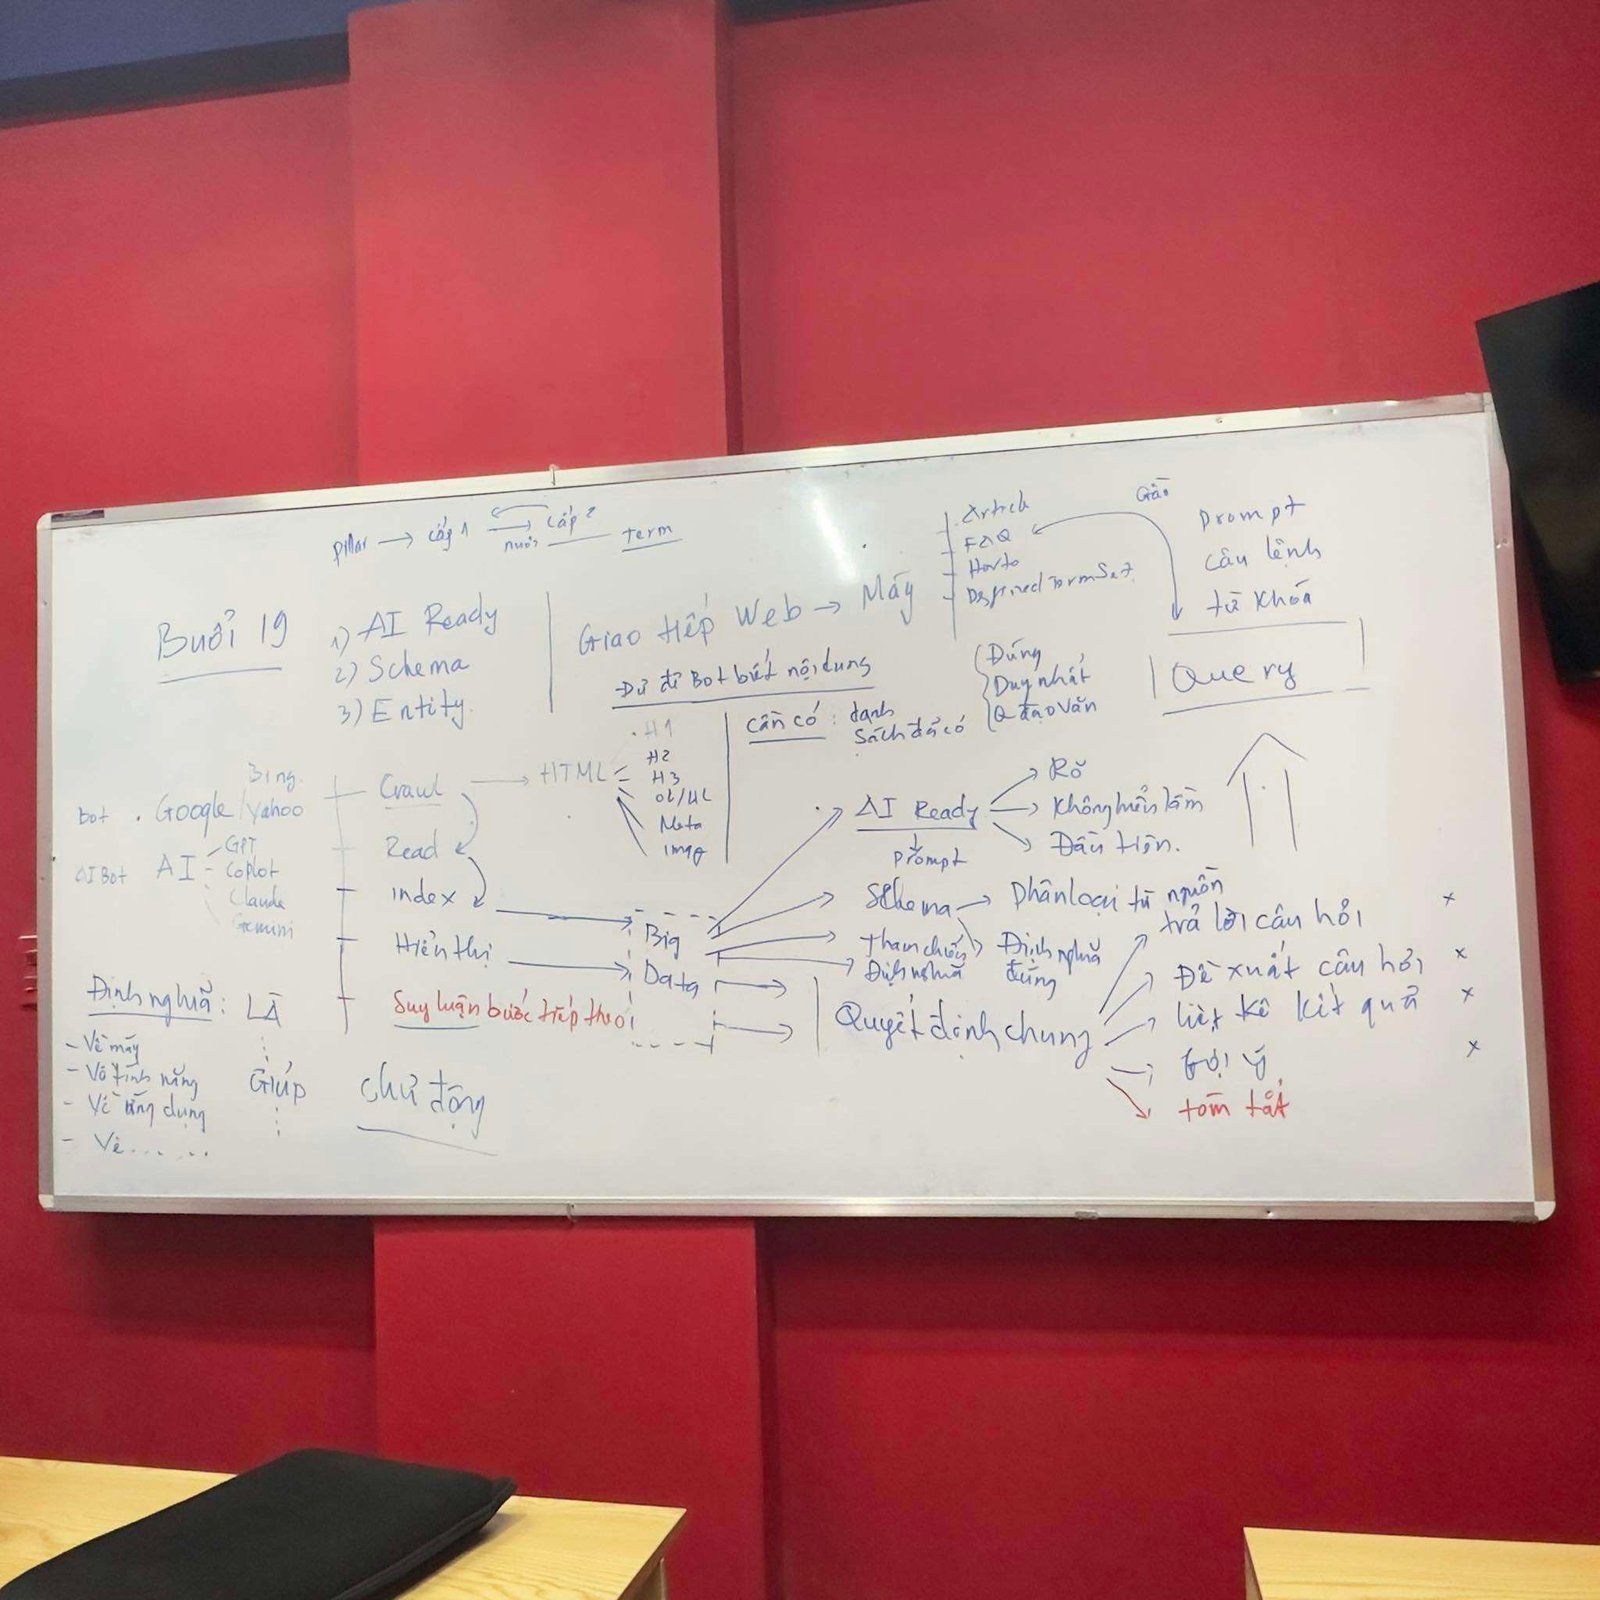 pillar → cấp 1 ⇌ cấp 2
term
Buổi 19
1) AI Ready
2) Schema
3) Entity
Giao tiếp Web → Máy
Article
FAQ
Howto
Defined Term Set
Gần
Prompt
câu lệnh
từ khóa
Query
Dữ để Bot biết nội dung
Cần có : danh
Sách đã có
Đúng
Duy nhất
Q đạo văn
Bing
Bot . Google / Yahoo
AI Bot AI
GPT
Copilot
Claude
Gemini
Crawl → HTML
H1
H2
H3
OL/UL
Meta
Imag
Read
index
Hiển thị
Suy luận bước tiếp theo
Big
Data
AI Ready
Prompt
Rõ
Không hiểu lầm
Đầu tiên.
Schema → Phân loại từ nguồn
Tham chiếu
Định nghĩa
Định nghĩa
đúng
Quyết định chung
trả lời câu hỏi ×
Đề xuất câu hỏi ×
liệt kê kết quả ×
Gợi ý ×
tóm tắt
Định nghĩa : LÀ
- Về máy
- Về tính năng
- Về ứng dụng
- Về ......
Giúp
chủ động